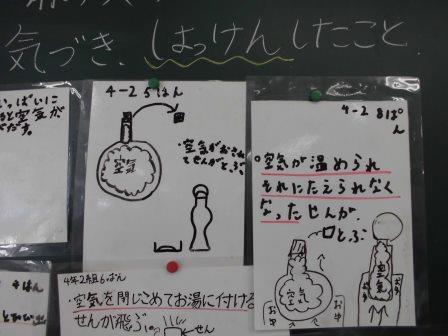 気づき、はっけんしたこと、
い、ぱいに
と空気が
だす。
4-2 5はん
空気
・空気がおされ
てせんがとぶ。
4-2 8ぱ
ん
空気が温められ
それにたえられなく
なったせんが、
とぶ
空気
お湯
お湯
空気
4年2組6ぱん
・空気を閉じこめてお湯に付ける
せんが飛ぶ。
せん